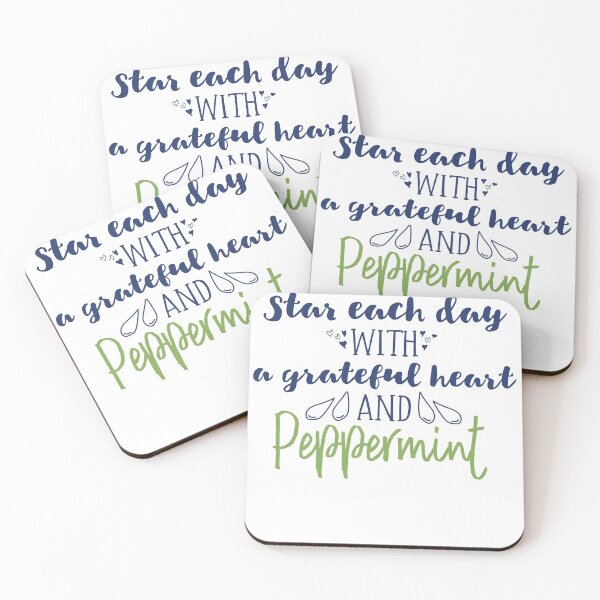 Star each day
WITH
a grateful heart
AND
Star each day
WITH
a grateful heart
AND
Peppermint
Star each day
WITH
a grateful heart
AND
Peppermint
Star each day
WITH
a grateful heart
AND
Peppermint